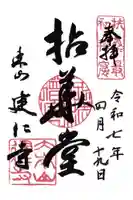 奉拝
令和七年
四月十九日
拈華堂
東山 建仁寺